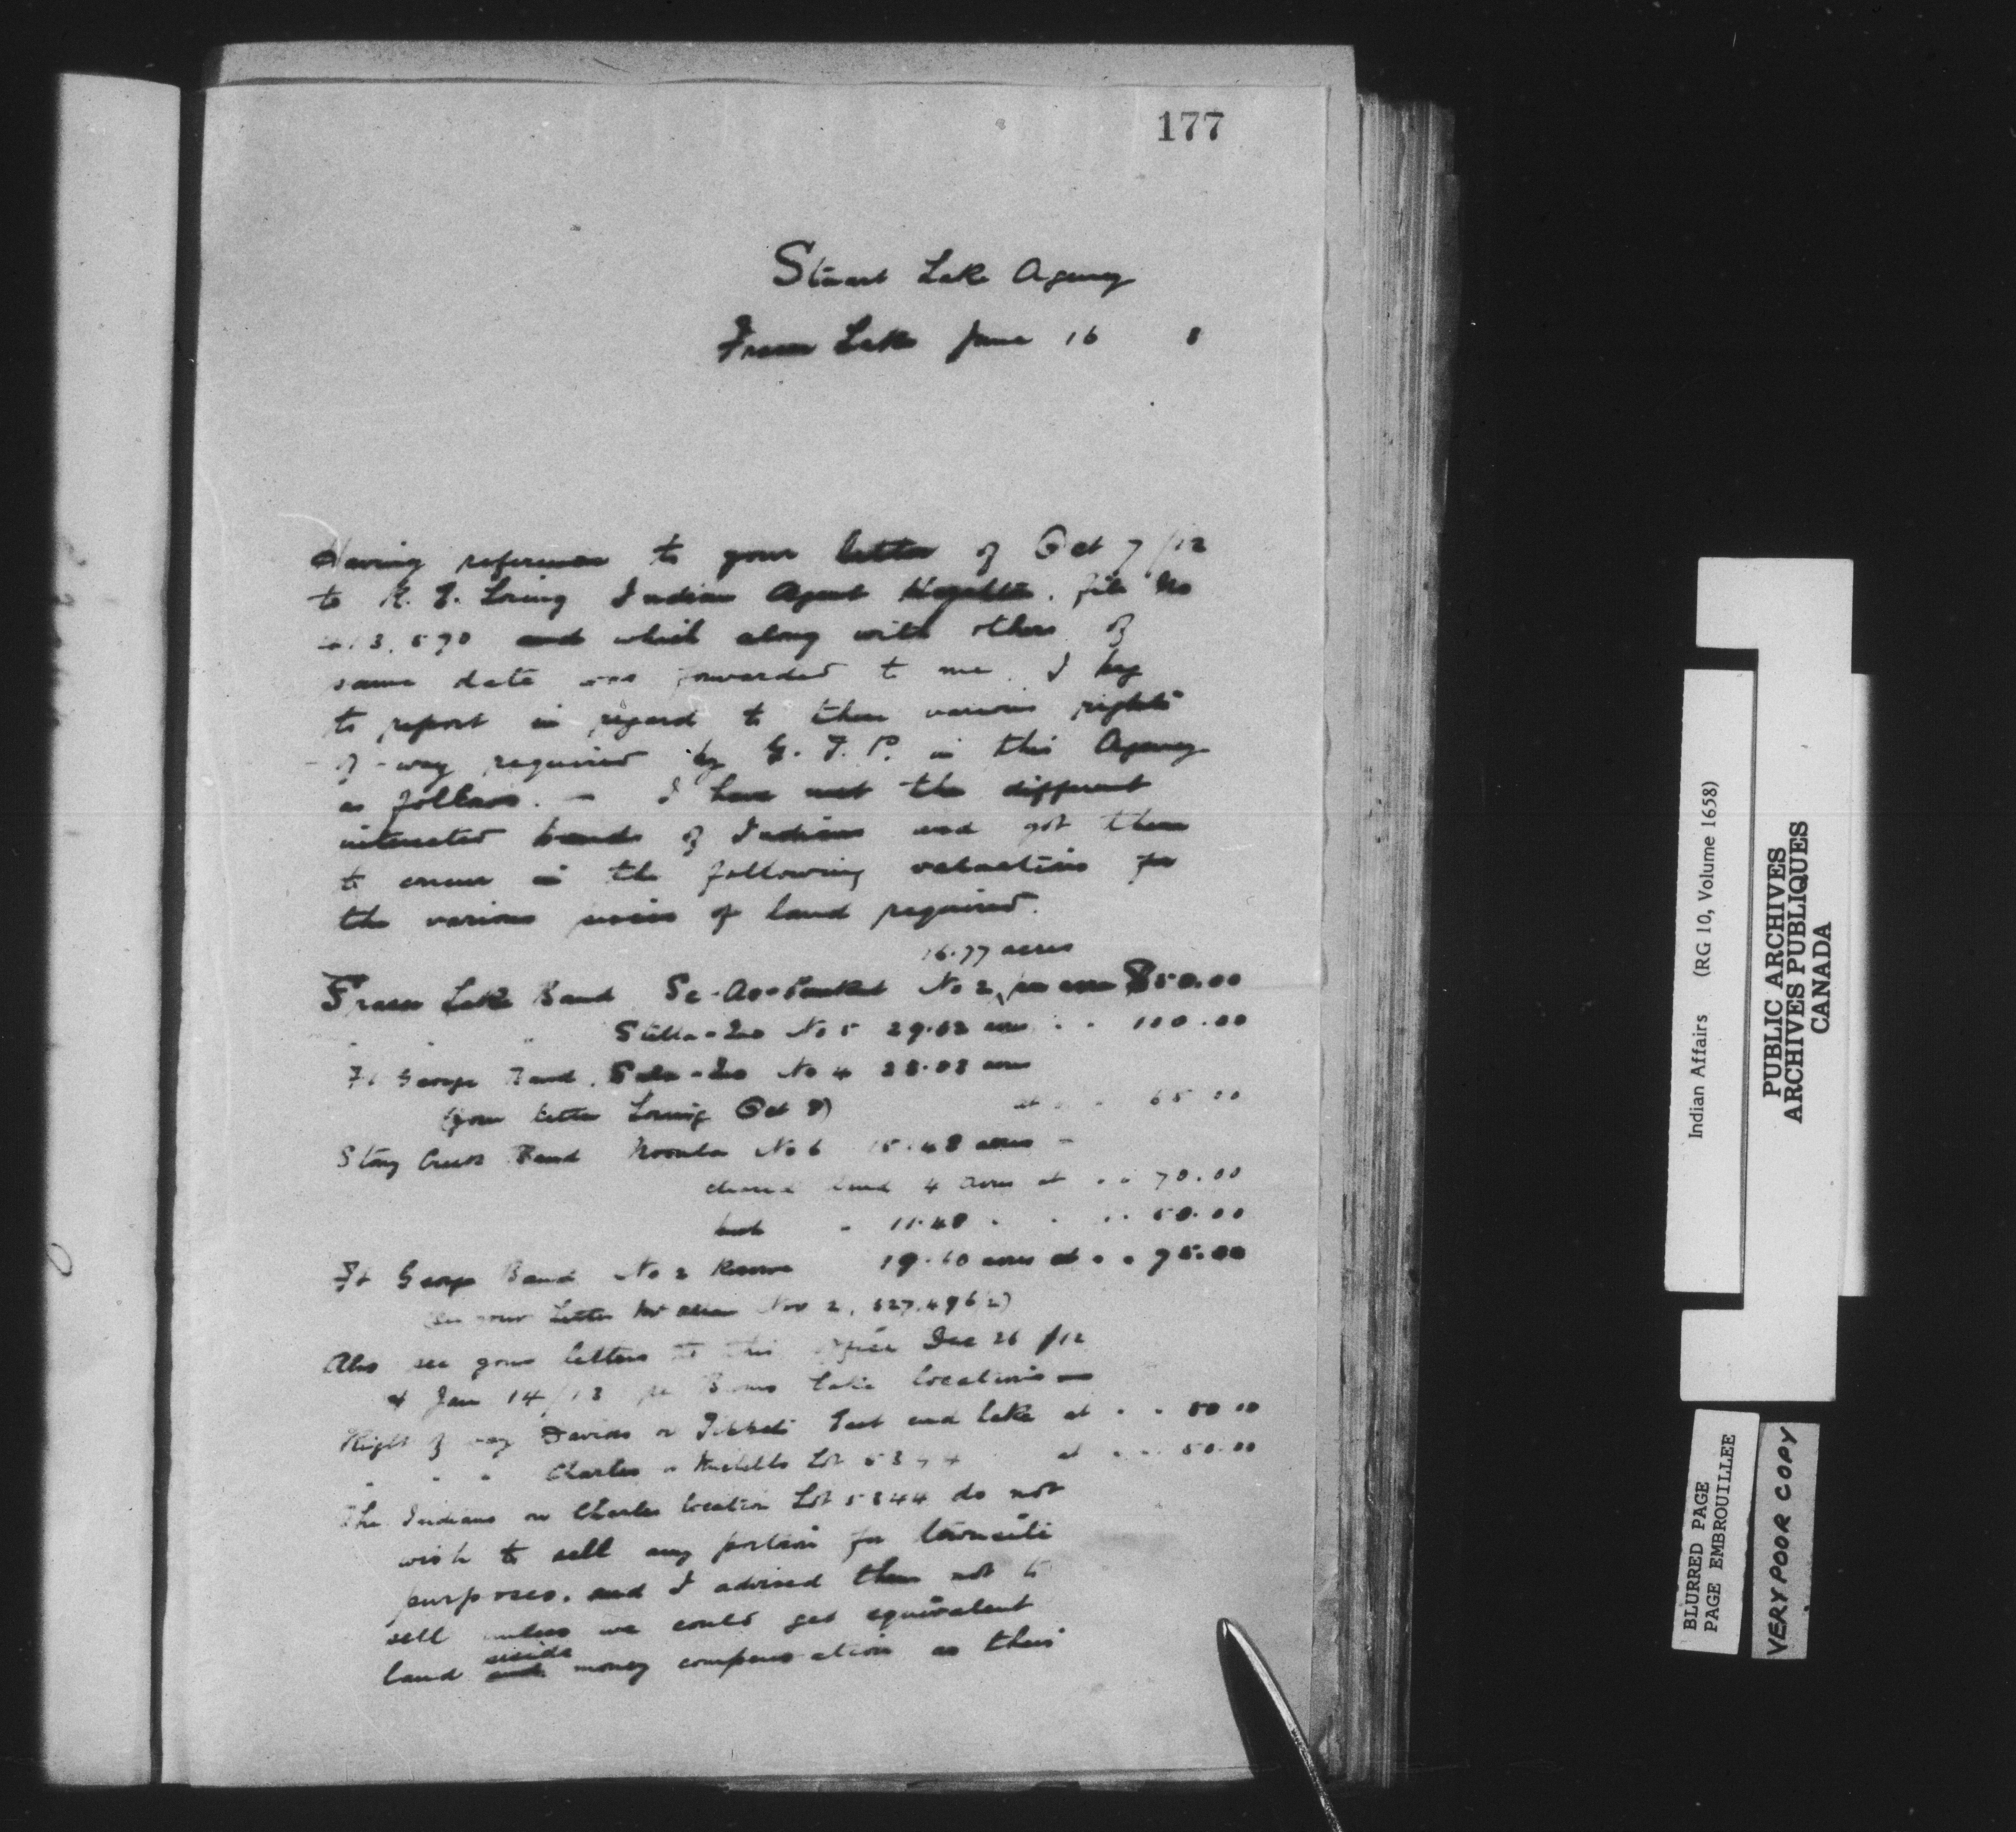 177
Stuart Lake Agency
Fraser Lake June 16 8
Having reference to your letter of Oct 7/12
to R. E. Loring Indian Agent Hazelton. file No
13,590 and which along with others of
same date was forwarded to me. I beg
to report in regard to these various rights
of-way required by G. T. P. in this Agency
as follows. — I have met the different
interested bands of Indians and got them
to concur in the following valuations for
the various pieces of land required.
16.77 acres
Fraser Lake Band No 2, per acre $50.00
" " Stella-Quo No 5 29.62 acres " " 100.00
Ft George Band. No 4 28.08 acres
(your letter Loring Oct 8) at " " 65.00
Stony Creek Band Noonla No 6 15.48 acres -
cleared land 4 acres at " " 70.00
bush " 11.48 " " " " 50.00
Ft George Band No 2 Reserve 19.60 acres at " " 75.00
(See your letter Nov 2, 427,496(2)
Also see your letters to this office Dec 26/12
& Jan 14/13 re Burns Lake locations —
Right of way Davids or Tibbets East end lake at " " 50 00
" " " Charles or Michells Lot 5344 at " " 50.00
The Indians on Charles location Lot 5344 do not
wish to sell any portion for townsite
purposes. and I advised them not to
sell unless we could get equivalent
land beside and money compensation as their
Indian Affairs (RG 10, Volume 1658)
PUBLIC ARCHIVES
ARCHIVES PUBLIQUES
CANADA
BLURRED PAGE
PAGE EMBROUILLEE
VERY POOR COPY